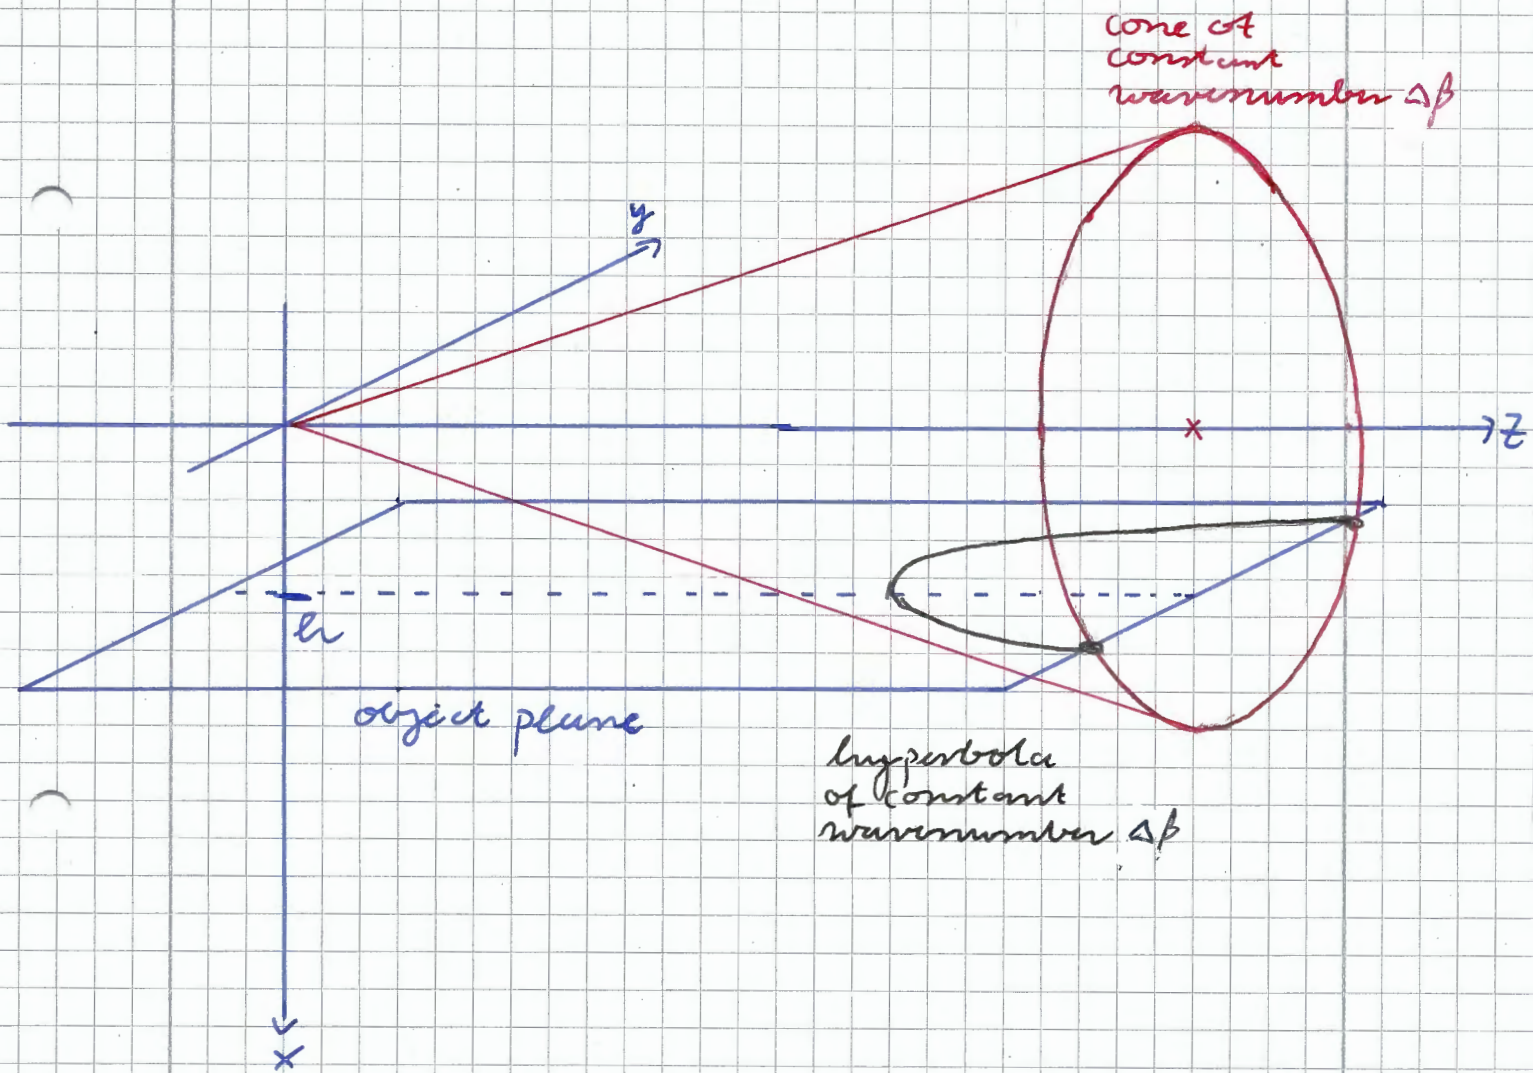 cone of
constant
wavenumber Δβ
y
z
h
object plane
hyperbola
of constant
wavenumber Δβ
x